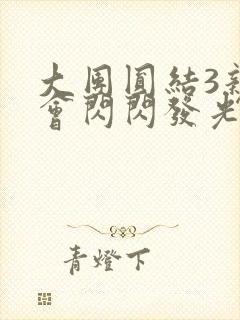 大團圓結3新
會閃閃發光
青燈下